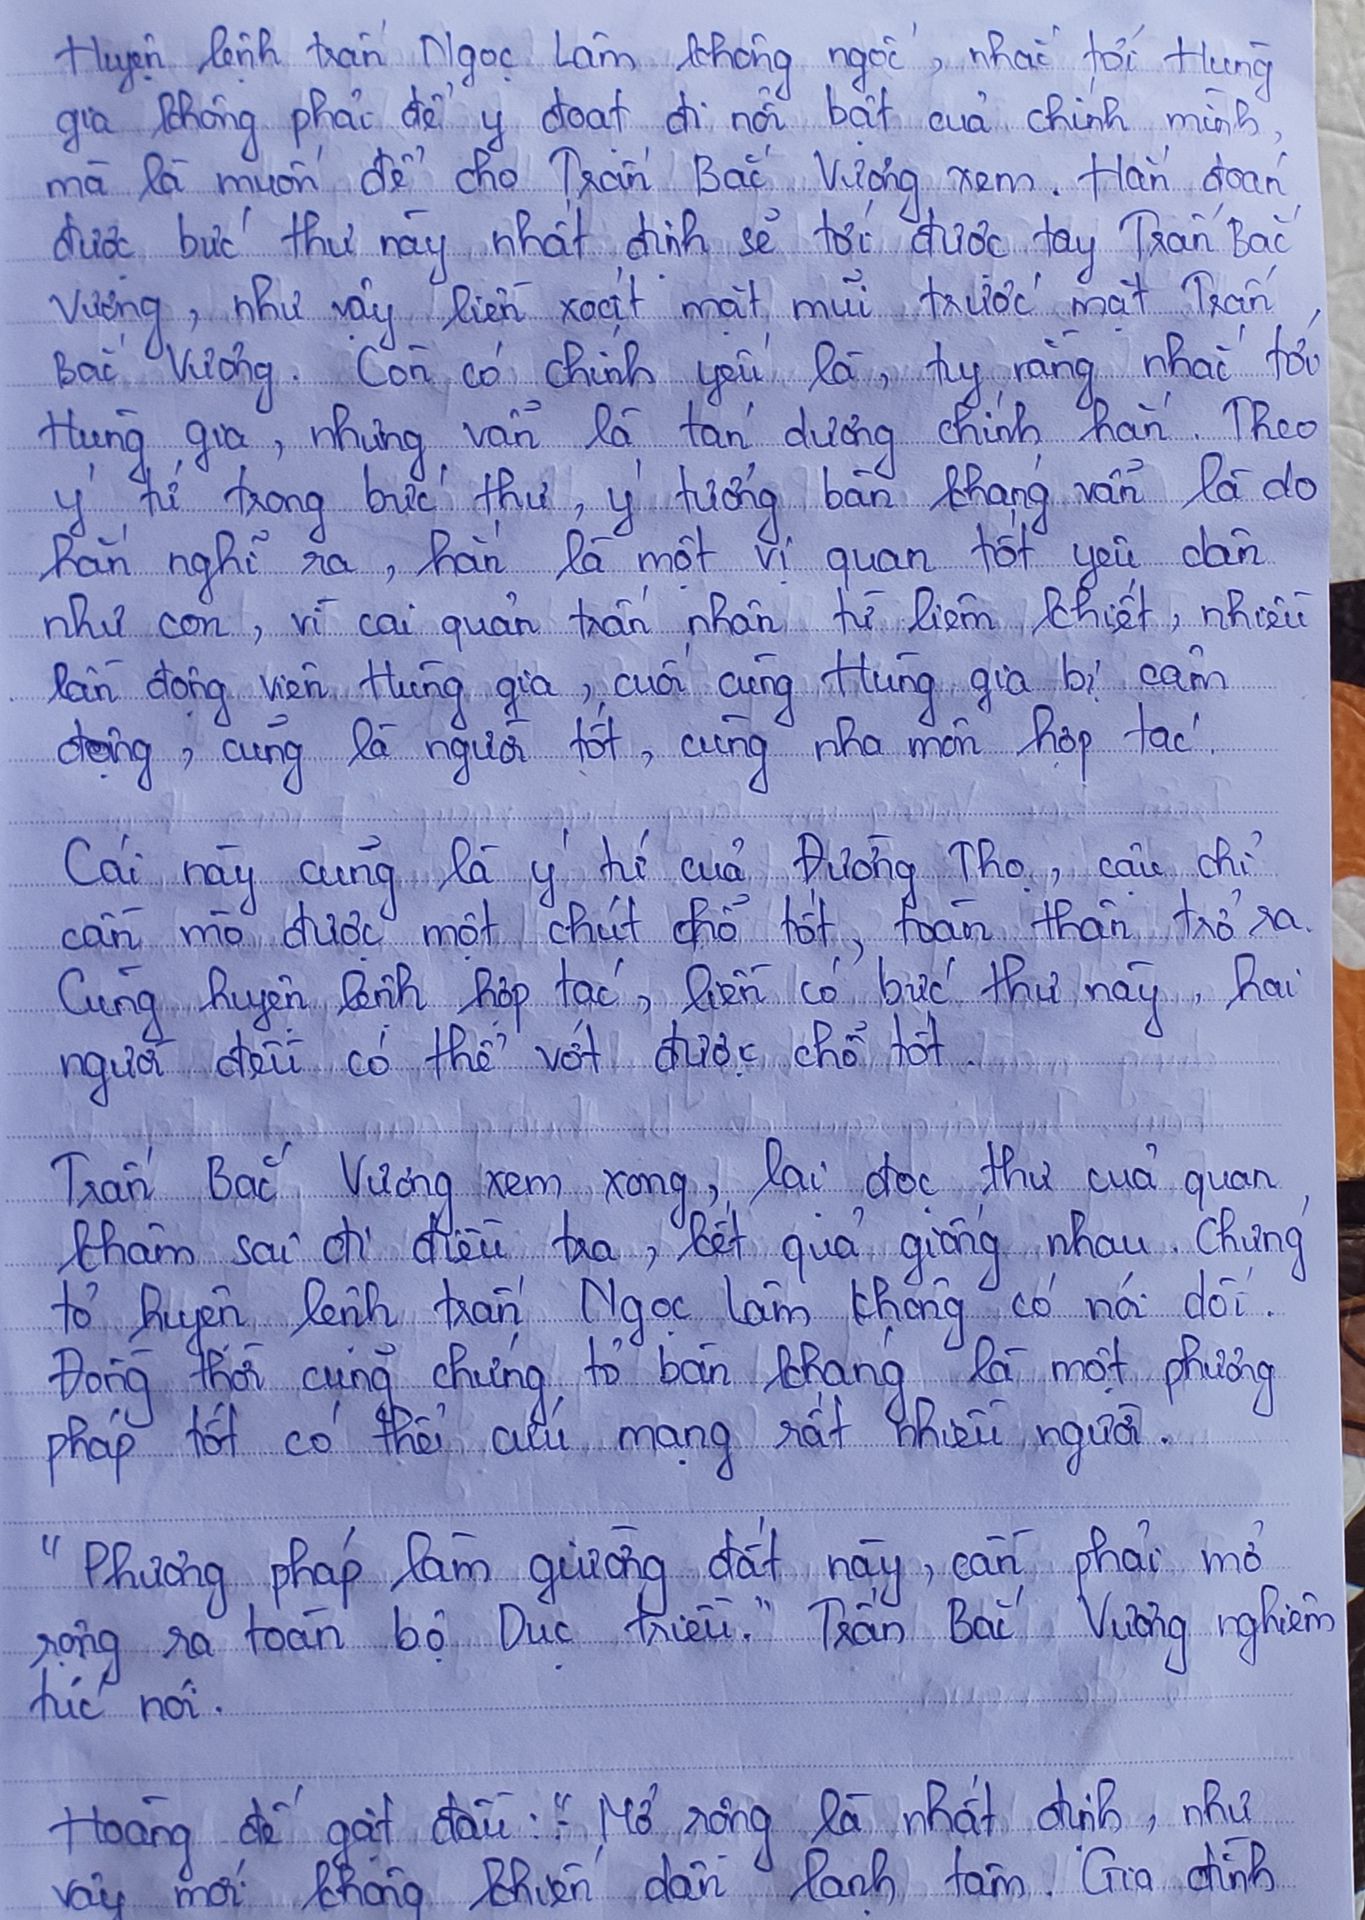 Huyện lệnh trấn Ngọc Lâm không ngốc, nhắc tới Hùng
gia không phải để y đoạt đi nổi bật của chính mình,
mà là muốn để cho Trấn Bắc Vương xem. Hắn đoán
được bức thư này nhất định sẽ tới được tay Trấn Bắc
Vương, như vậy liền xoát mặt mũi trước mặt Trấn
Bắc Vương. Còn có chính yếu là, tuy rằng nhắc tới
Hùng gia, nhưng vẫn là tán dương chính hắn. Theo
ý tứ trong bức thư, ý tưởng bàn kháng vẫn là do
hắn nghĩ ra, hắn là một vị quan tốt yêu dân
như con, vì cai quản trấn nhân từ liêm khiết, nhiều
lần động viên Hùng gia, cuối cùng Hùng gia bị cảm
động, cũng là người tốt, cùng nha môn hợp tác.
Cái này cũng là ý tứ của Đường Thọ, cậu chỉ
cần mò được một chút chỗ tốt, toàn thân trở ra.
Cùng huyện lệnh hợp tác, liền có bức thư này, hai
người đều có thể vớt được chỗ tốt.
Trấn Bắc Vương xem xong, lại đọc thư của quan
khâm sai đi điều tra, kết quả giống nhau. Chứng
tỏ huyện lệnh trấn Ngọc Lâm không có nói dối.
Đồng thời cũng chứng tỏ bàn kháng là một phương
pháp tốt có thể cứu mạng rất nhiều người.
"Phương pháp làm giường đất này, cần phải mở
rộng ra toàn bộ Dục triều." Trấn Bắc Vương nghiêm
túc nói.
Hoàng đế gật đầu: "Mở rộng là nhất định, như
vậy mới không khiến dân lạnh tâm. Gia đình